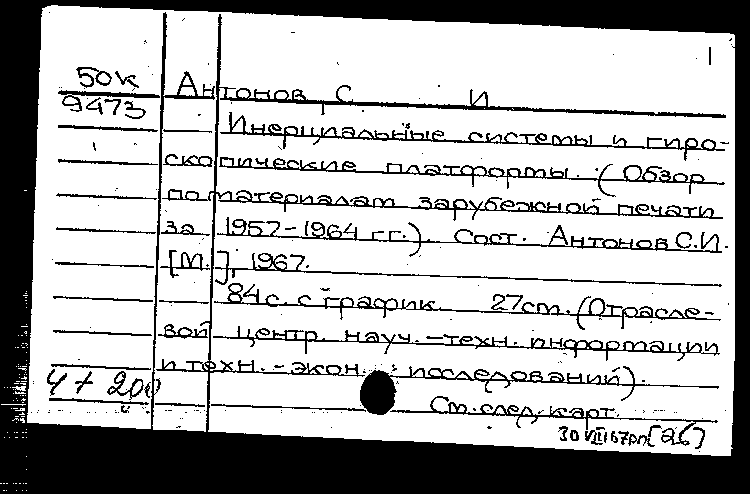 1
50к
9473
Антонов, С И
Инерциальные системы и гиро-
скопические платформы. (Обзор
по материалам зарубежной печати
за 1957-1964 гг.). Сост. Антонов С.И.
[М.], 1967.
84с. с график. 27см. (Отрасле-
вой центр. науч.-техн. информации
и техн.-экон. исследований).
4+ 200
См. след. карт.
30 VIII 67 [26]